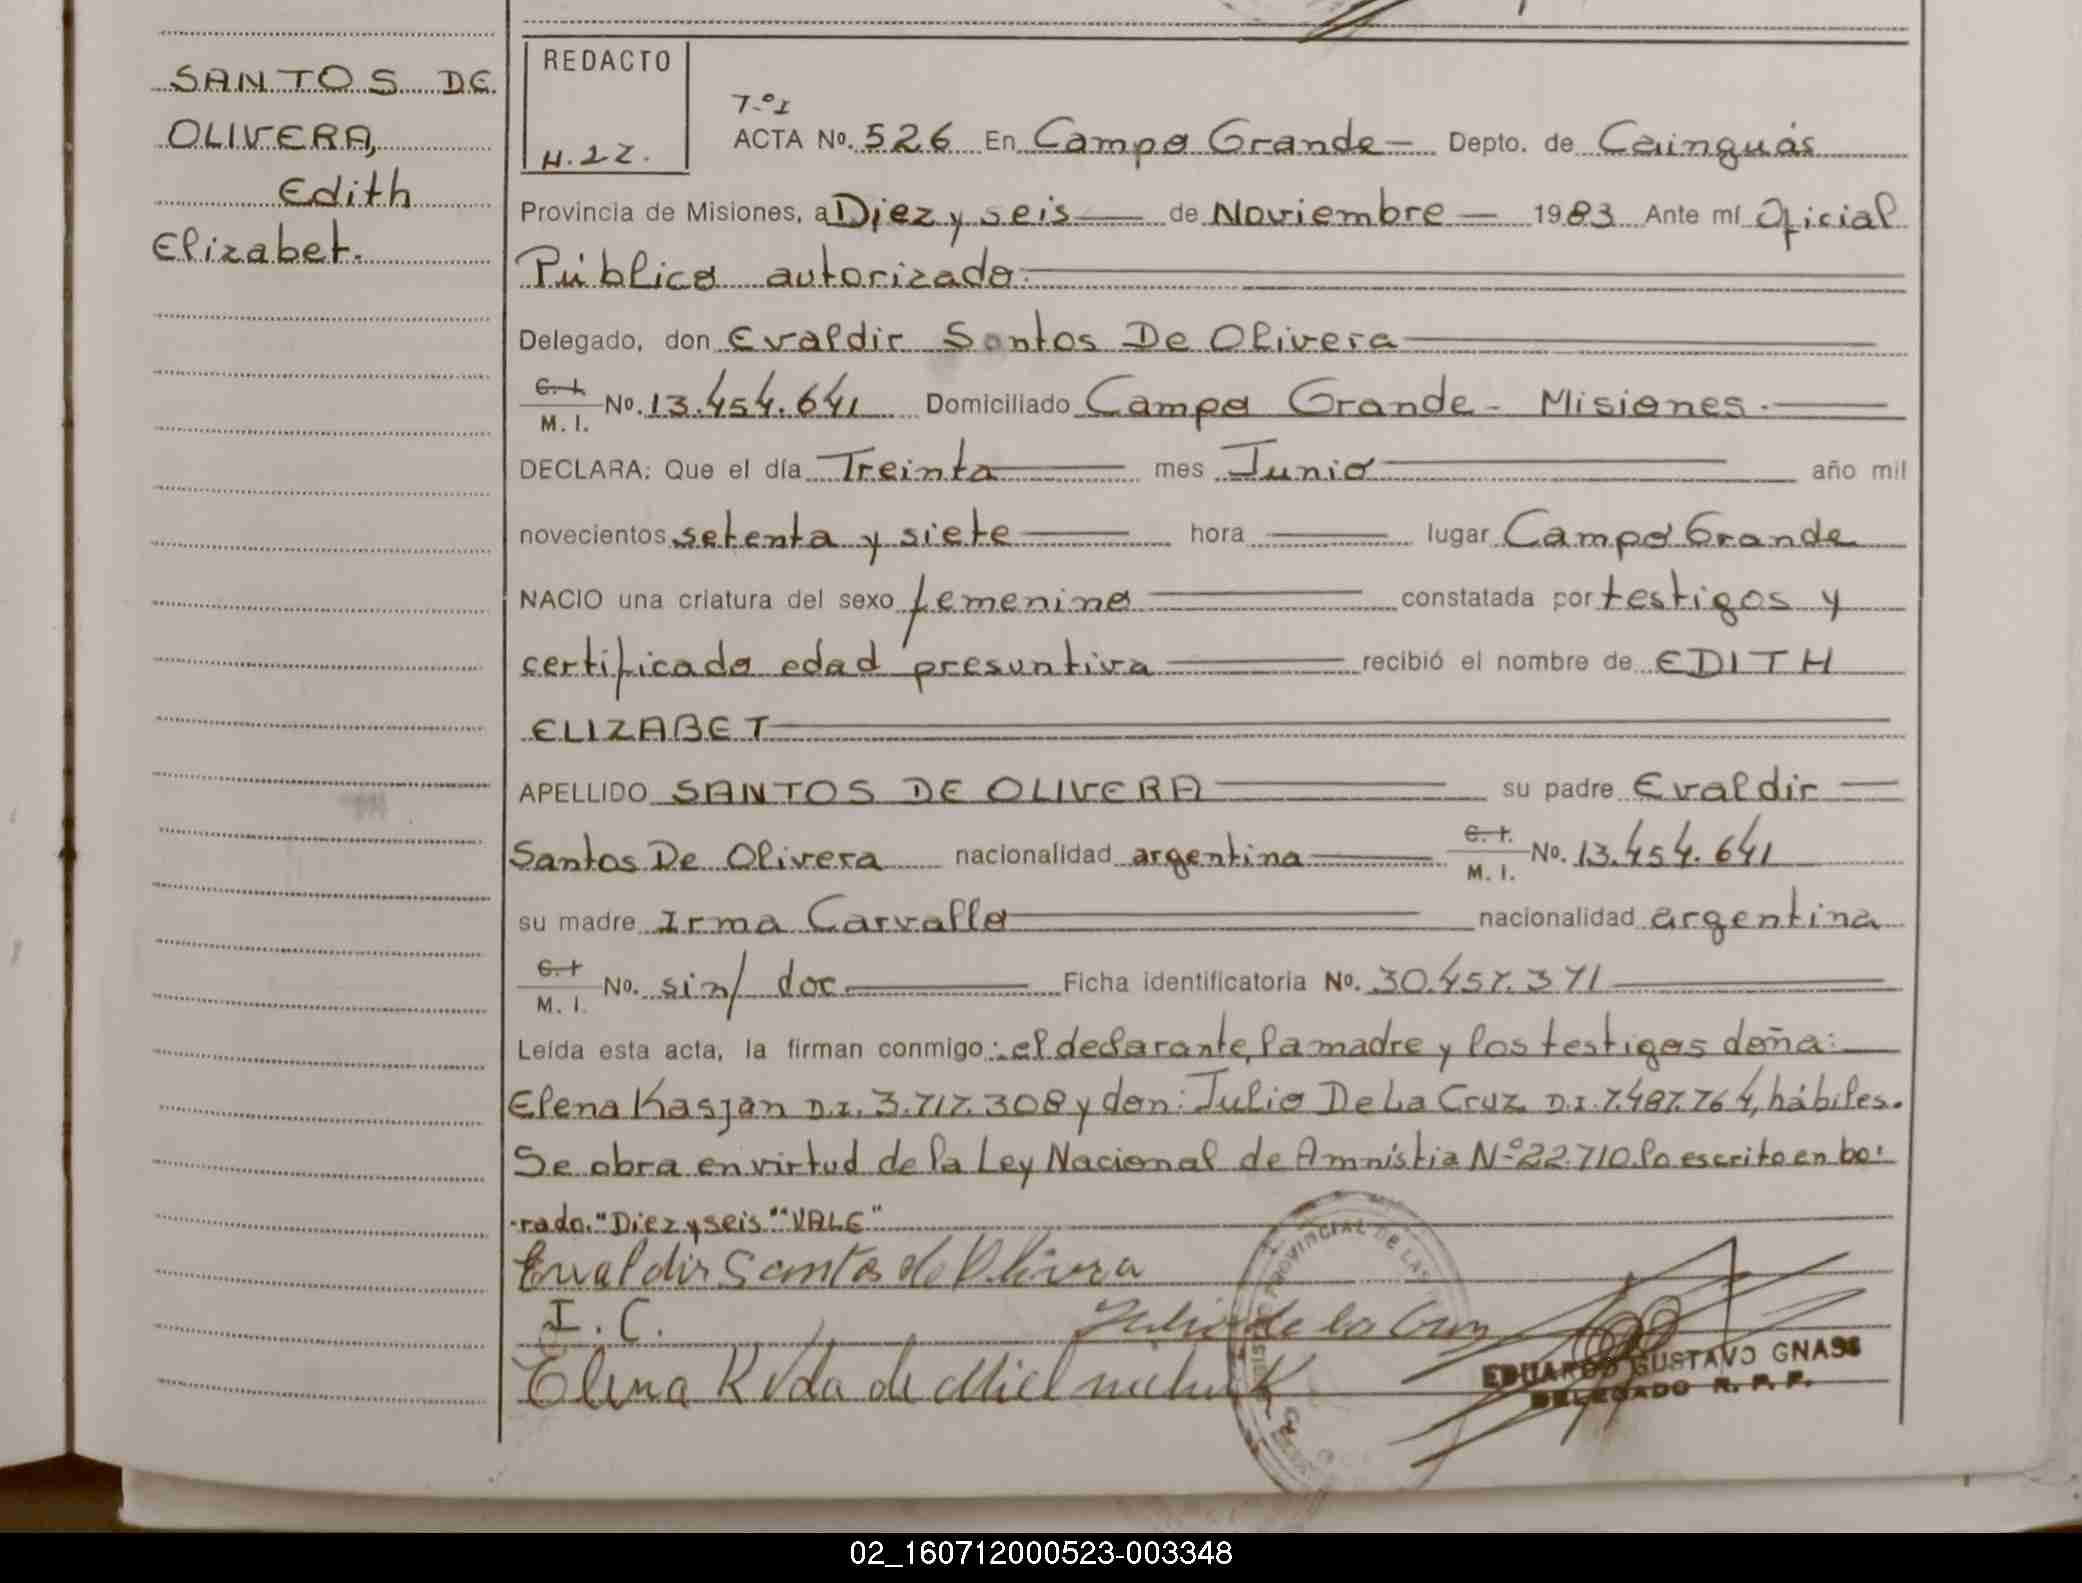 SANTOS DE
OLIVERA,
Edith
Elizabet.
REDACTO
H.2Z.
T.º I
ACTA Nº. 526 En Campo Grande — Depto. de Cainguás
Provincia de Misiones, a Diez y seis — de Noviembre — 1983 Ante mí Oficial
Público autorizado.
Delegado, don Evaldir Santos De Olivera
C. I. / M. I. Nº. 13.454.641 Domiciliado Campo Grande - Misiones.
DECLARA: Que el día Treinta mes Junio año mil
novecientos setenta y siete hora — lugar Campo Grande
NACIO una criatura del sexo femenino constatada por testigos y
certificado edad presuntiva recibió el nombre de EDITH
ELIZABET
APELLIDO SANTOS DE OLIVERA su padre Evaldir
Santos De Olivera nacionalidad argentina C. I. / M. I. Nº. 13.454.641
su madre Irma Carvallo nacionalidad argentina
C. I / M. I. Nº. sin/ doc. Ficha identificatoria Nº. 30.457.371
Leída esta acta, la firman conmigo: el declarante, la madre y los testigos doña:
Elena Kasjan D.I. 3.717.308 y don: Julio De La Cruz D.I. 7.487.764, hábiles.
Se obra en virtud de la Ley Nacional de Amnistia Nº 22.710. lo escrito en bo-
rrado. "Diez y seis" "VALE"
Evaldir Santos de Olivera
I. C.
Julio de la Cruz
Elena
PROVINCIAL DE LAS
EDUARDO GUSTAVO GNASS
DELEGADO R. P. P.
02_160712000523-003348